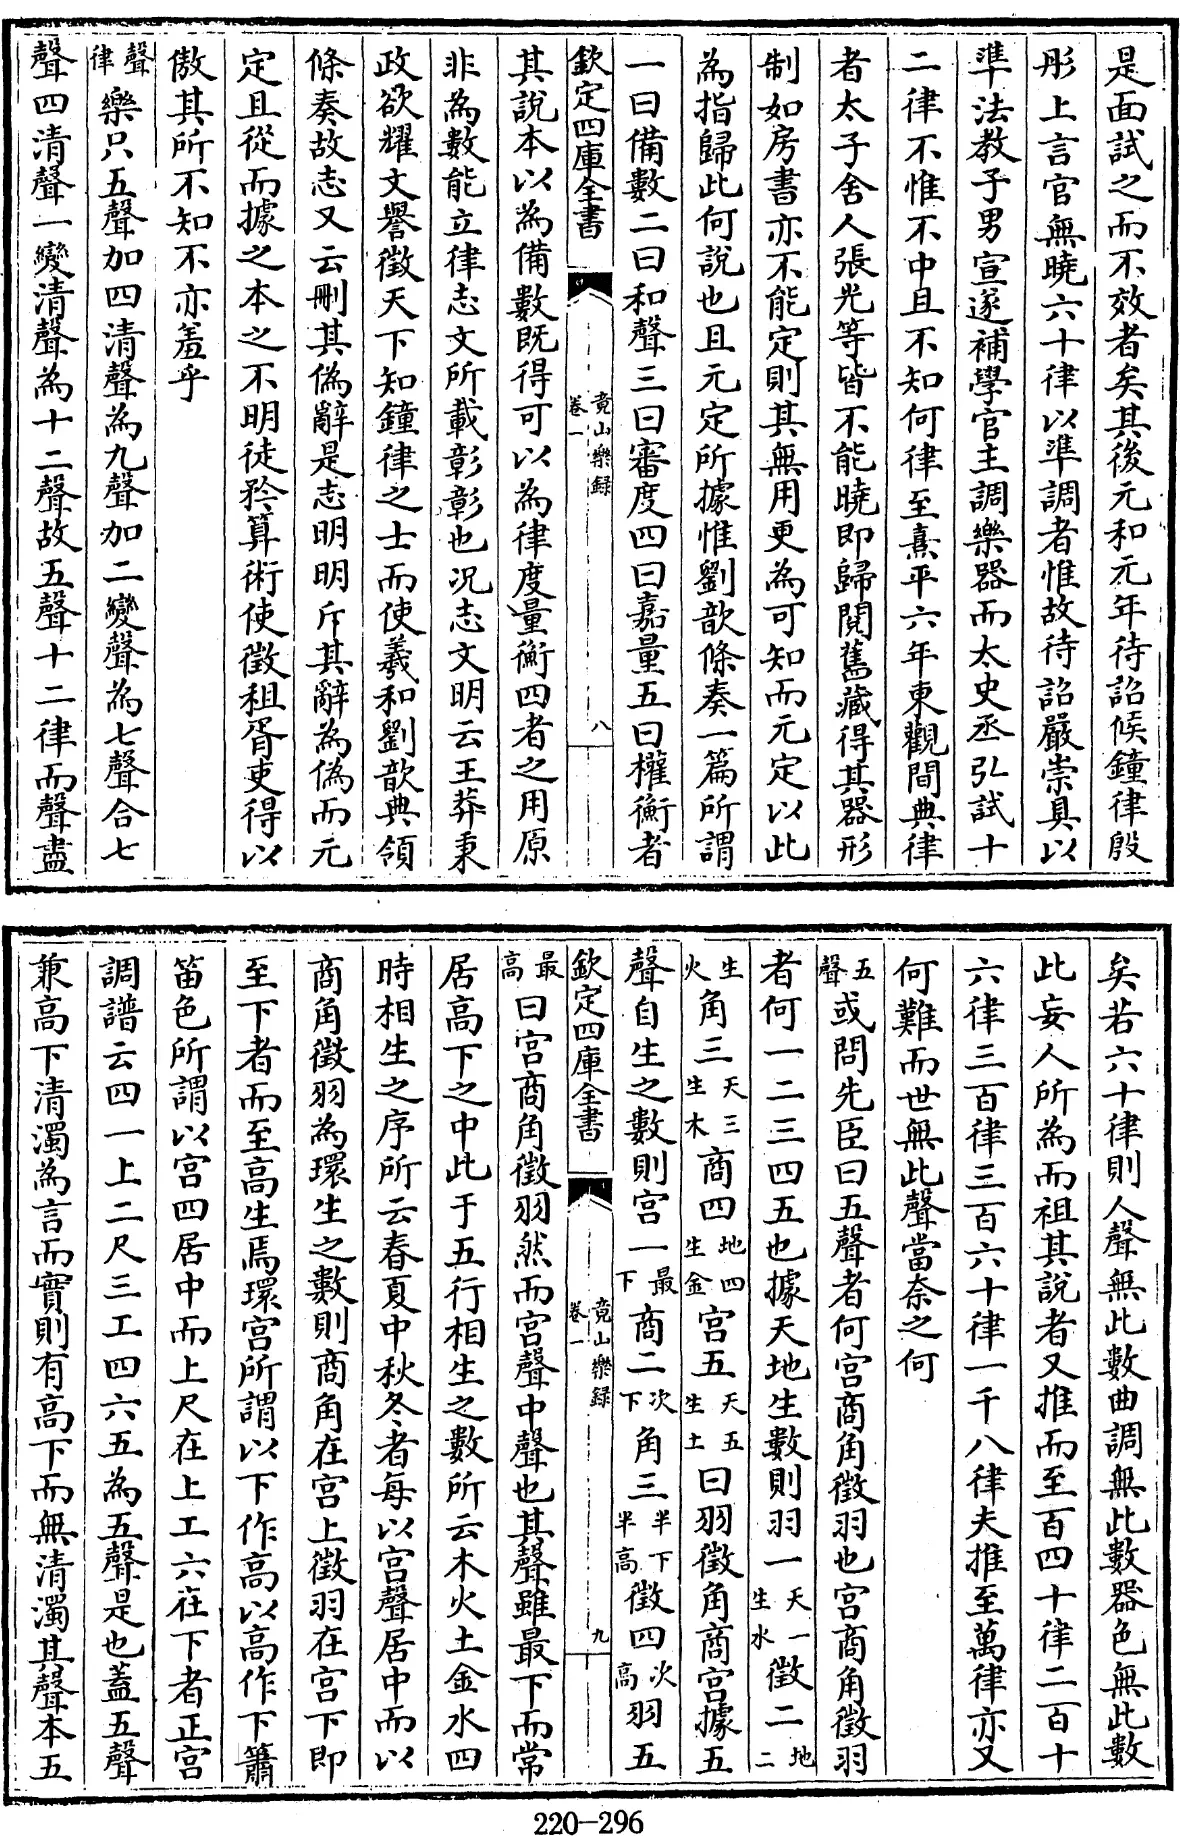 是面試之而不效者矣其後元和元年待詔候鐘律殷
肜上言官無曉六十律以準調者惟故待詔嚴崇具以
準法教子男宣遂補學官主調樂器而太史丞弘試十
二律不惟不中且不知何律至熹平六年東觀間典律
者太子舍人張光等皆不能曉即歸閱舊藏得其器形
制如房書亦不能定則其無用更為可知而元定以此
為指歸此何說也且元定所據惟劉歆條奏一篇所謂
一曰備數二曰和聲三曰審度四曰嘉量五曰權衡者
欽定四庫全書
竟山樂録
卷一
八
其說本以為備數既得可以為律度量衡四者之用原
非為數能立律志文所載彰彰也况志文明云王莽秉
政欲耀文譽徵天下知鐘律之士而使羲和劉歆典領
條奏故志又云刪其偽辭是志明明斥其辭為偽而元
定且從而據之本之不明徒矜算術使徵租胥吏得以
傲其所不知不亦羞乎
聲律樂只五聲加四清聲為九聲加二變聲為七聲合七
聲四清聲一變清聲為十二聲故五聲十二律而聲盡
矣若六十律則人聲無此數曲調無此數器色無此數
此妄人所為而祖其說者又推而至百四十律二百十
六律三百律三百六十律一千八律夫推至萬律亦又
何難而世無此聲當奈之何
五聲或問先臣曰五聲者何宮商角徵羽也宮商角徵羽
者何一二三四五也據天地生數則羽一天一生水徵二地二
生火角三天三生木商四地四生金宮五天五生土曰羽徵角商宮據五
聲自生之數則宮一最下商二次下角三半下半高徵四次高羽五
欽定四庫全書
竟山樂録
卷一
九
最高曰宮商角徵羽然而宮聲中聲也其聲雖最下而常
居高下之中此于五行相生之數所云木火土金水四
時相生之序所云春夏中秋冬者每以宮聲居中而以
商角徵羽為環生之數則商角在宮上徵羽在宮下即
至下者而至高生焉環宮所謂以下作高以高作下簫
笛色所謂以宮四居中而上尺在上工六在下者正宮
調譜云四一上二尺三工四六五為五聲是也蓋五聲
兼高下清濁為言而實則有高下而無清濁其聲本五
220-296